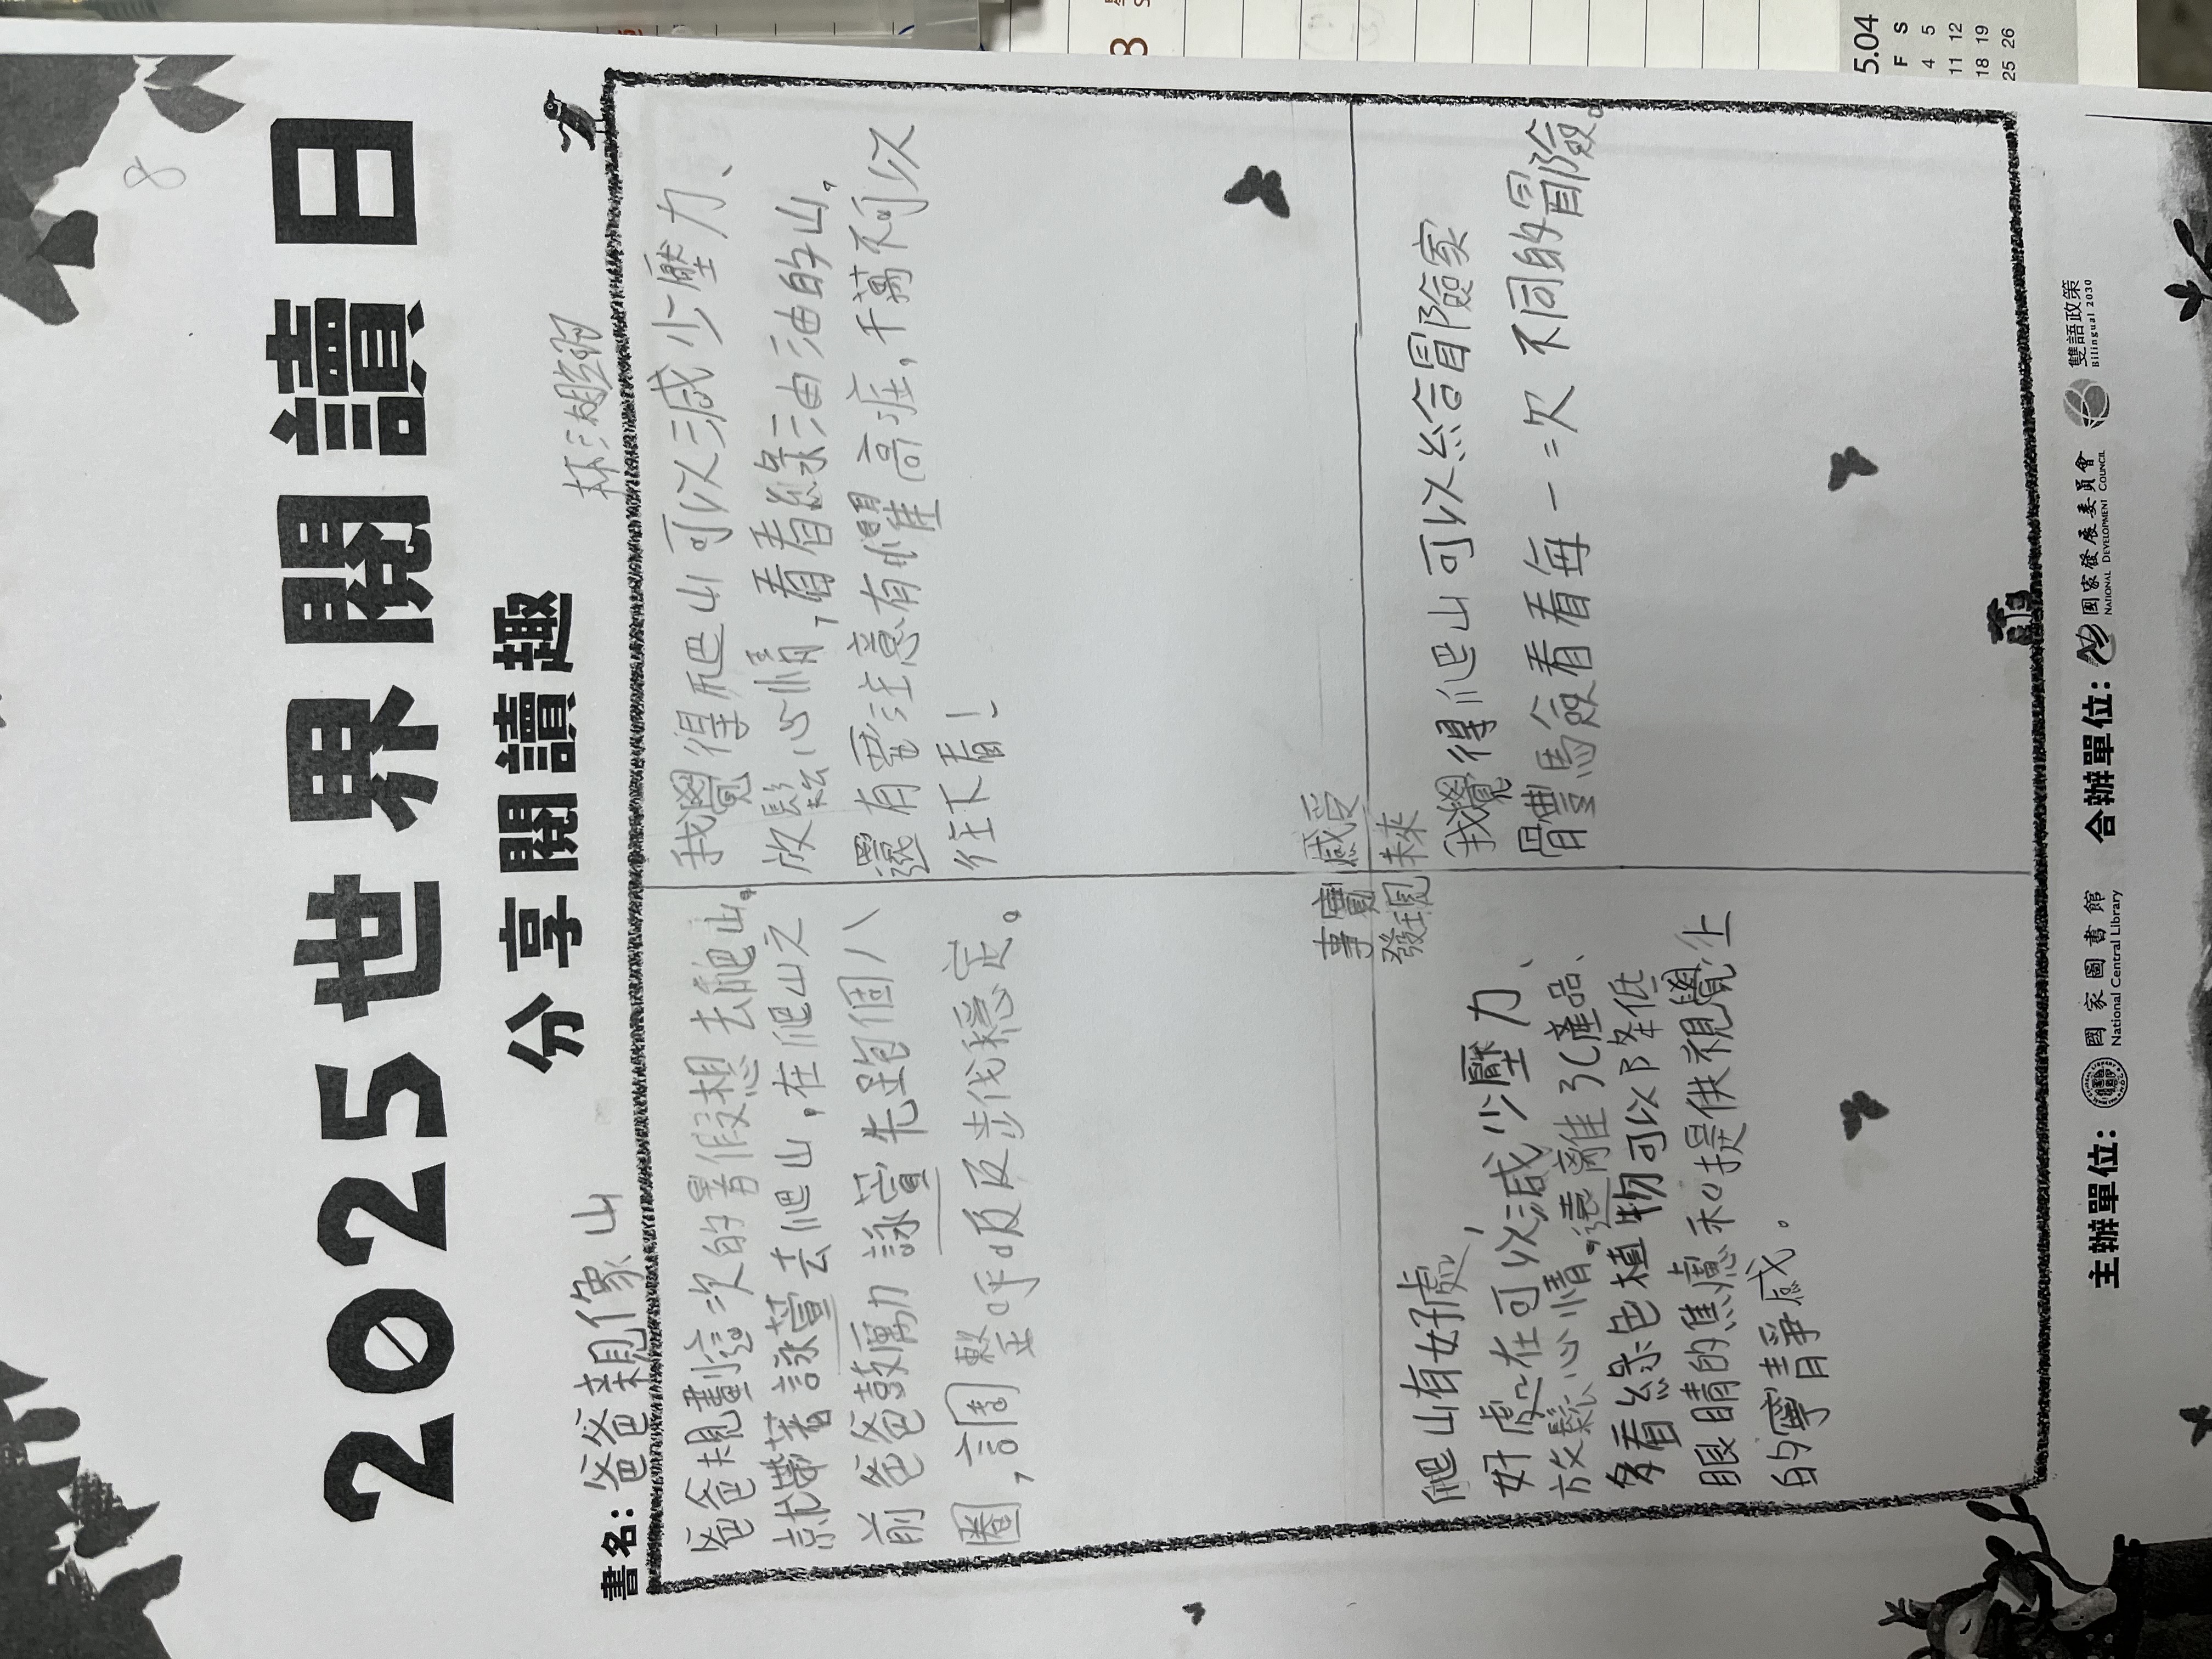 8
2025世界閱讀日
分享閱讀趣
書名：爸爸親像山
爸爸規劃這次的暑假想去爬山。
就帶著詠萱去爬山，在爬山之
前爸爸鼓勵詠萱先跑個八
圈，調整呼吸及步伐穩定。
我覺得爬山可以減少壓力、
放鬆心情，看看綠油油的山。
還有要注意有懼高症，千萬不可以
往下看！
事實
感受
發現
未來
爬山有好處，
好處在可以減少壓力、
放鬆心情。遠離3C產品、
多看綠色植物可以降低
眼睛的焦慮和提供視覺上
的寧靜感。
我覺得爬山可以給冒險家
體驗看看每一次不同的冒險。
主辦單位：
國家圖書館
National Central Library
合辦單位：
國家發展委員會
NATIONAL DEVELOPMENT COUNCIL
雙語政策
Bilingual 2030
5.04
F S
4 5
11 12
18 19
25 26